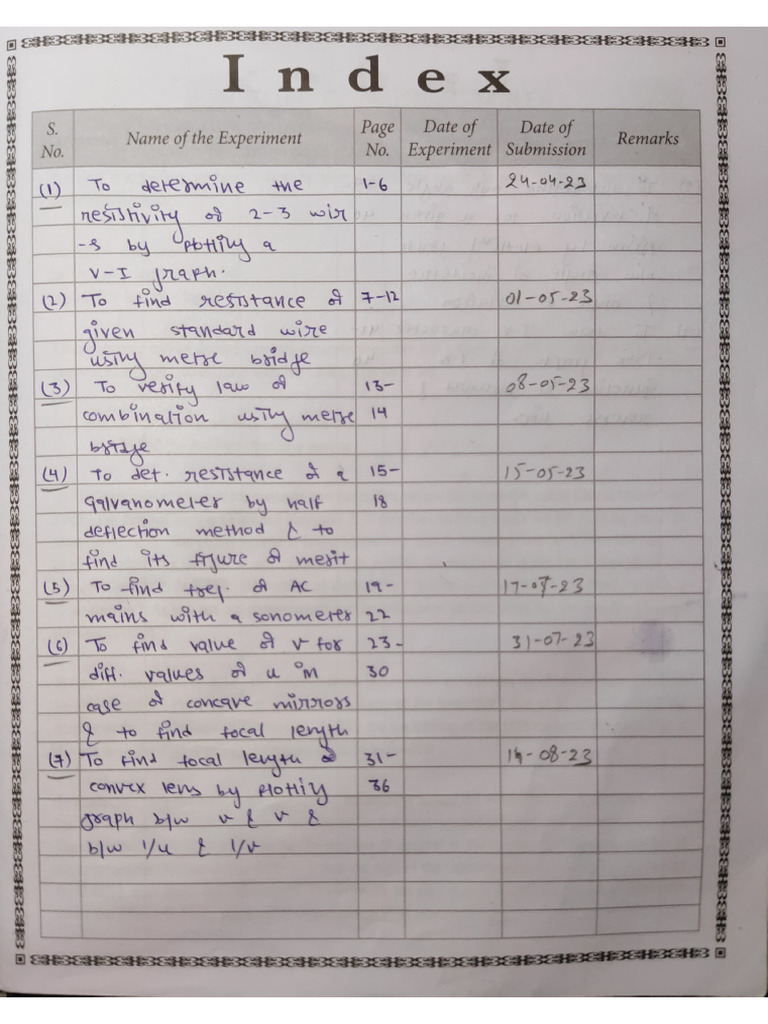 Index
S. No. Name of the Experiment Page No. Date of Experiment Date of Submission Remarks
(1) To determine the 1-6 24-04-23
resistivity of 2-3 wir
-s by plotting a
V-I graph.
(2) To find resistance of 7-12 01-05-23
given standard wire
using metre bridge
(3) To verify law of 13- 08-05-23
combination using metre 14
bridge
(4) To det. resistance of a 15- 15-05-23
galvanometer by half 18
deflection method & to
find its figure of merit
(5) To find freq. of AC 19- 17-07-23
mains with a sonometer 22
(6) To find value of v for 23- 31-07-23
diff. values of u in 30
case of concave mirrors
& to find focal length
(7) To find focal length of 31- 14-08-23
convex lens by plotting 36
graph b/w v & v &
b/w 1/u & 1/v